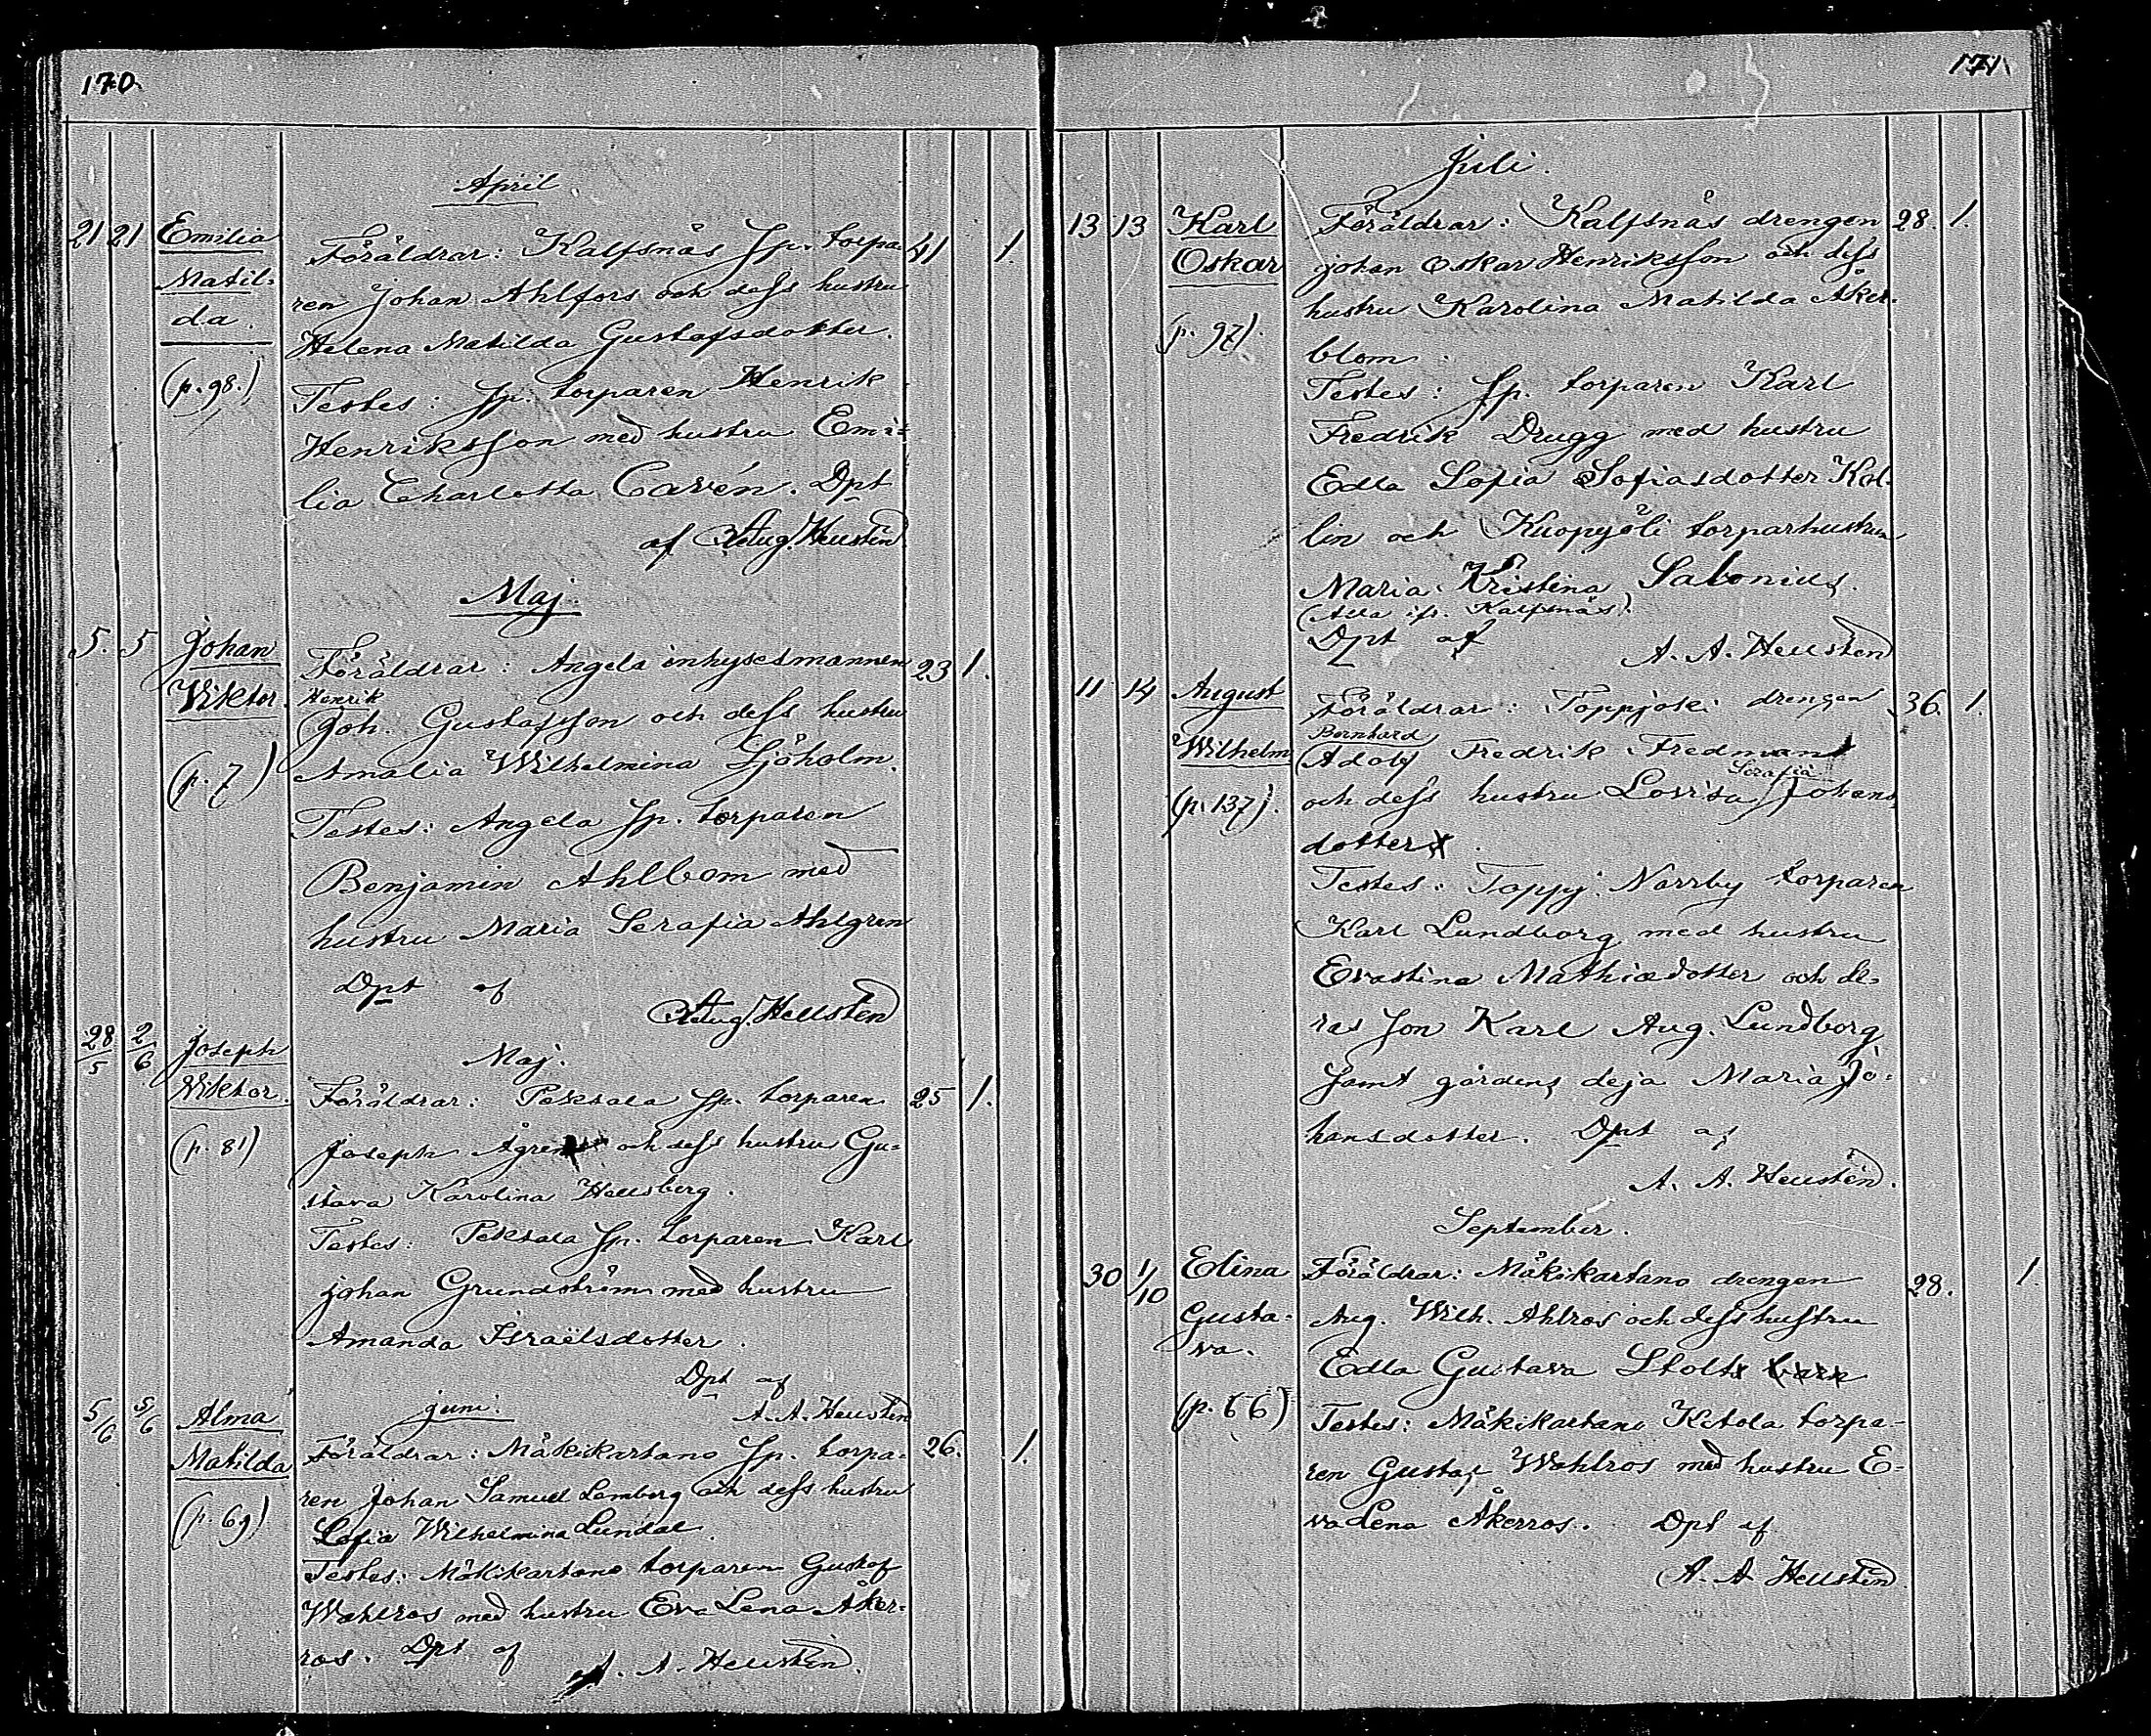 170.
April
21 21 Emilia Föräldrar: Kalfsnäs Sp. torpa- 41 1.
Matil-
da. ren Johan Ahlfors och dess hustru
Helena Matilda Gustafsdotter.
(p. 98.) Testes: Sp. torparen Henrik
Henriksson med hustru Emi-
lia Charlotta Carén. Dpt
af Aug. Hellstén
Maj.
5. 5 Johan Föräldrar: Angela inhysesmannen 23 1.
Wiktor. Henrik
Joh. Gustafsson och dess hustru
(p. 7) Amalia Wilhelmina Sjöholm.
Testes: Angela Sp. torparen
Benjamin Ahlbom med
hustru Maria Serafia Ahlgren
Dpt af
Aug. Hellstén
28/5 2/6 Joseph Maj.
Wiktor. Föräldrar: Peksala Sp. torparen 25 1.
(p. 81) Joseph Ågren och dess hustru Gu-
stava Karolina Hellsberg.
Testes: Peksala Sp. torparen Karl
Johan Grundström med hustru
Amanda Israëlsdotter.
Dpt af
A. A. Hellstén
5/6 5/6 Alma Juni.
Matilda Föräldrar: Mäkikartano Sp. torpa- 26. 1.
ren Johan Samuel Lemberg och dess hustru
(p. 69) Sofia Wilhelmina Lundal.
Testes: Mäkikartano torparen Gustaf
Wahlros med hustru Eva Lena Åker-
ros. Dpt af A. A. Hellstén.
171.
Juli.
13 13 Karl Föräldrar: Kalfsnäs drengen 28. 1.
Oskar Johan Oskar Henriksson och dess
hustru Karolina Matilda Åker-
(p. 97). blom.
Testes: Sp. torparen Karl
Fredrik Drugg med hustru
Edla Sofia Sofiasdotter Kol-
lin och Kuopyöli torparhustrun
Maria Kristina Salonius.
(Alla fr. Kalfsnäs).
Dpt af A. A. Hellstén
11 14 August Föräldrar: Toppjoki drengen 36. 1.
Bernhard
Wilhelm (Adolf Fredrik Fredman
Serafia
(p. 137). och dess hustru Lovisa Johans-
dotter.
Testes: Toppj. Norrby torparen
Karl Lundborg med hustru
Evastina Mathiædotter och de-
ras son Karl Aug. Lundborg
samt gårdens deja Maria Jo-
hansdotter. Dpt af
A. A. Hellstén.
September.
30 1/10 Elina Föräldrar: Mäkikartano drengen 28. 1.
Gusta- Aug. Wilh. Ahlros och dess hustru
va. Edla Gustava Stolt
(p. 66) Testes: Mäkikartano Ketola torpa-
ren Gustaf Wahlros med hustru E-
va Lena Åkerros. Dpt af
A. A. Hellstén.